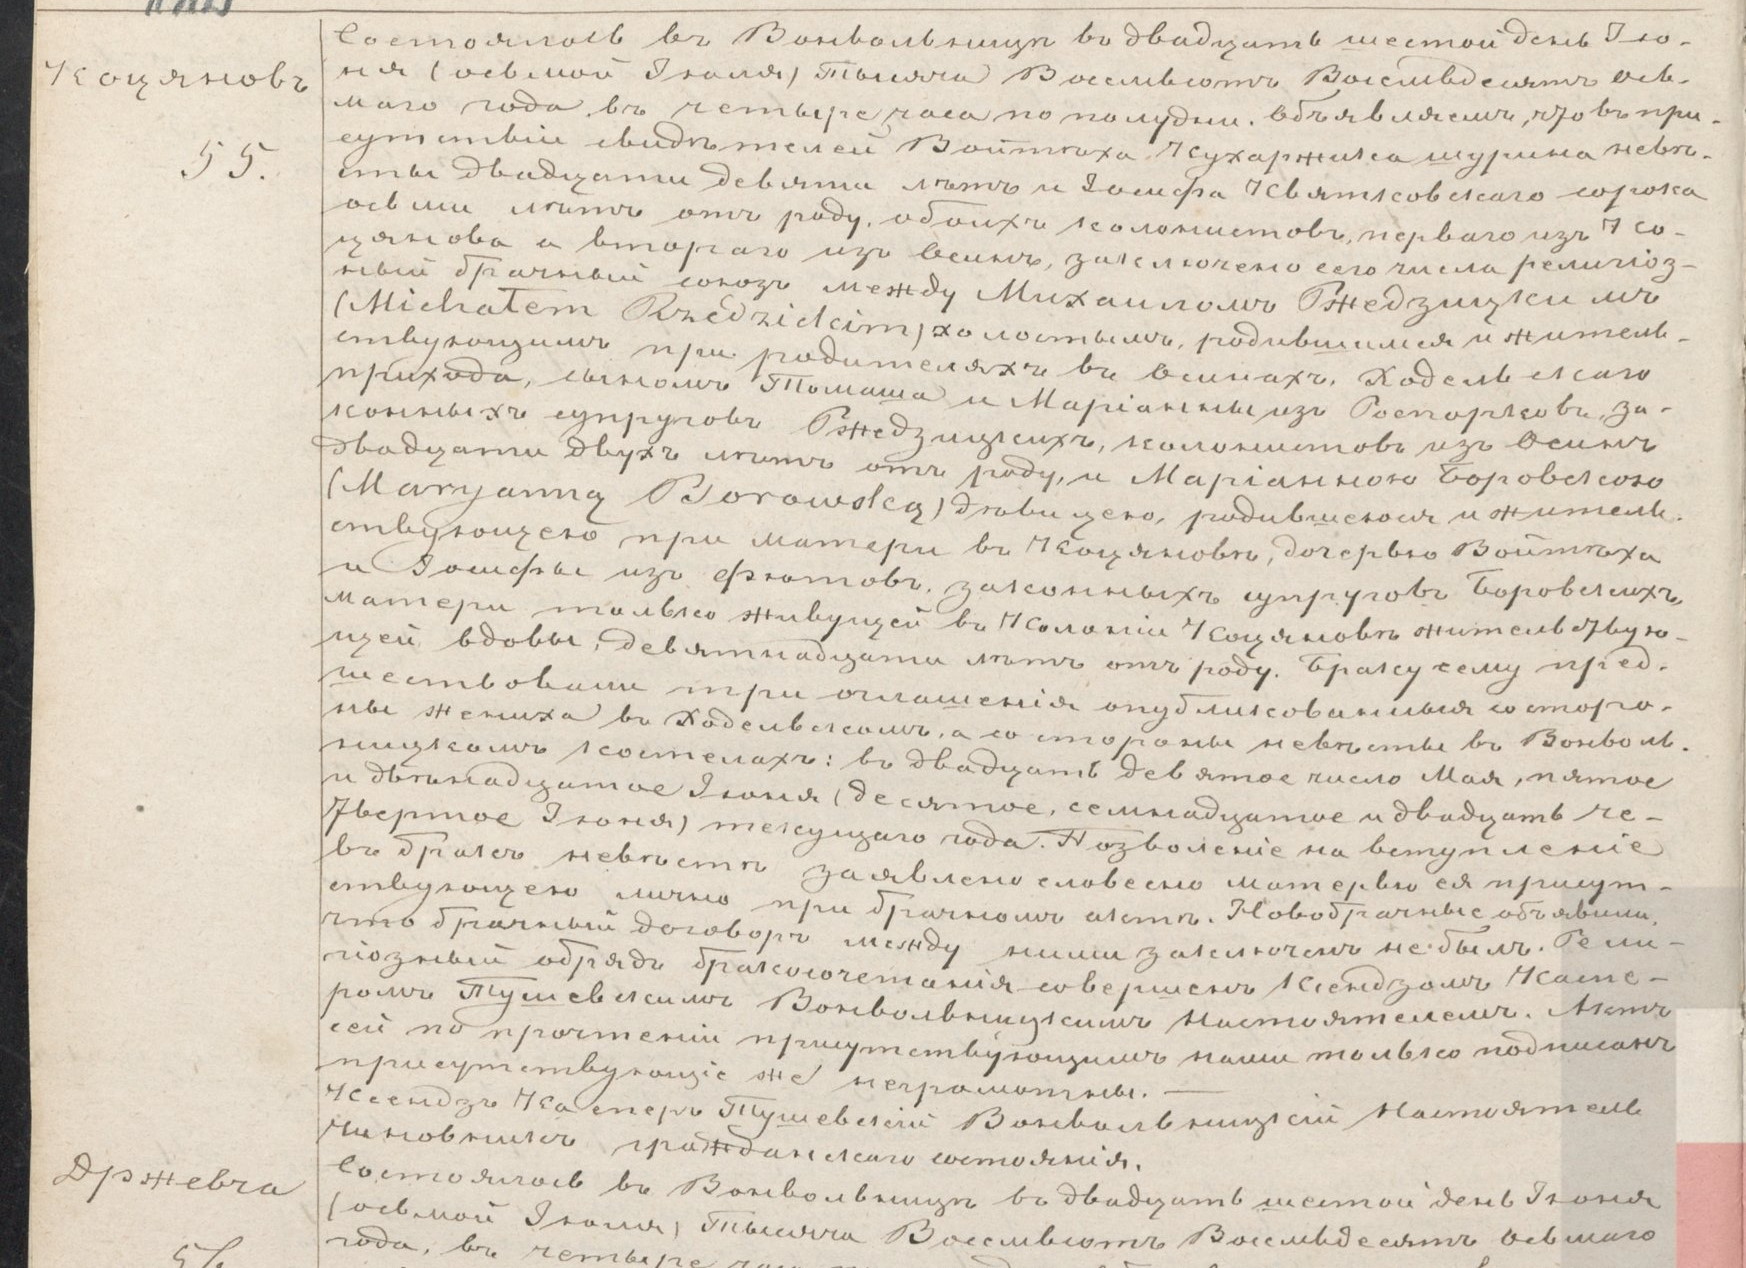 Состоялось въ Вонвольницѣ въ двадцать шестой день Iю-
Коцяновъ
ня (осьмой Iюля) Тысяча Восемьсотъ Восемьдесятъ ось-
маго года, въ четыре часа по полудни. Объявляемъ, что въ при-
55.
сутствіи свидѣтелей Войтѣха Кухаржика шурина невѣ-
сты двадцати девяти лѣтъ и Iосифа Квятковскаго сорока
осьми лѣтъ отъ роду, обоихъ колонистовъ, перваго изъ Ко-
цянова а втораго изъ Осинъ, заключено сего числа религіоз-
ный брачный союзъ между Михаиломъ Ржедзицкимъ
(Michałem Rzedzickim) холостымъ, родившимся и житель-
ствующимъ при родителяхъ въ Осинахъ, Ходельскаго
прихода, сыномъ Томаша и Маріанны изъ Роспорковъ, за-
конныхъ супруговъ Ржедзицкихъ, колонистовъ изъ Осинъ
двадцати двухъ лѣтъ отъ роду, и Маріанною Боровскою
(Maryanną Borowską) дѣвицею, родившеюся и житель-
ствующею при матери въ Коцяновѣ, дочерью Войтѣха
и Iосифы изъ Фютовъ, законныхъ супруговъ Боровскихъ,
матери только живущей въ Колоніи Коцяновъ жительствую-
щей вдовы, девятнадцати лѣтъ отъ роду. Браку сему пред-
шествовали три оглашенія опубликованныя со сторо-
ны жениха въ Ходельскомъ, а со стороны невѣсты въ Вонволь-
ницкомъ костелахъ: въ двадцать девятое число Мая, пятое
и двѣнадцатое Iюня (десятое, семнадцатое и двадцать че-
твертое Iюня) текущаго года. Позволеніе на вступленіе
въ бракъ невѣстѣ заявлено словесно матерью ея присут-
ствующею лично при брачномъ актѣ. Новобрачные объявили,
что брачный договоръ между ними заключенъ не былъ. Рели-
гіозный обрядъ бракосочетанія совершенъ Ксендзомъ Каспе-
ромъ Тушевскимъ Вонвольницкимъ Настоятелемъ. Актъ
сей по прочтеніи присутствующимъ нами только подписанъ
присутствующіе же неграмотны. —
Ксендзъ Касперъ Тушевскій Вонвольницкій Настоятель
Чиновникъ гражданскаго состоянія.
Држевча
Состоялось въ Вонвольницѣ въ двадцать шестой день Iюня
(осьмой Iюля) Тысяча Восемьсотъ Восемьдесятъ осьмаго
года, въ четыре часа